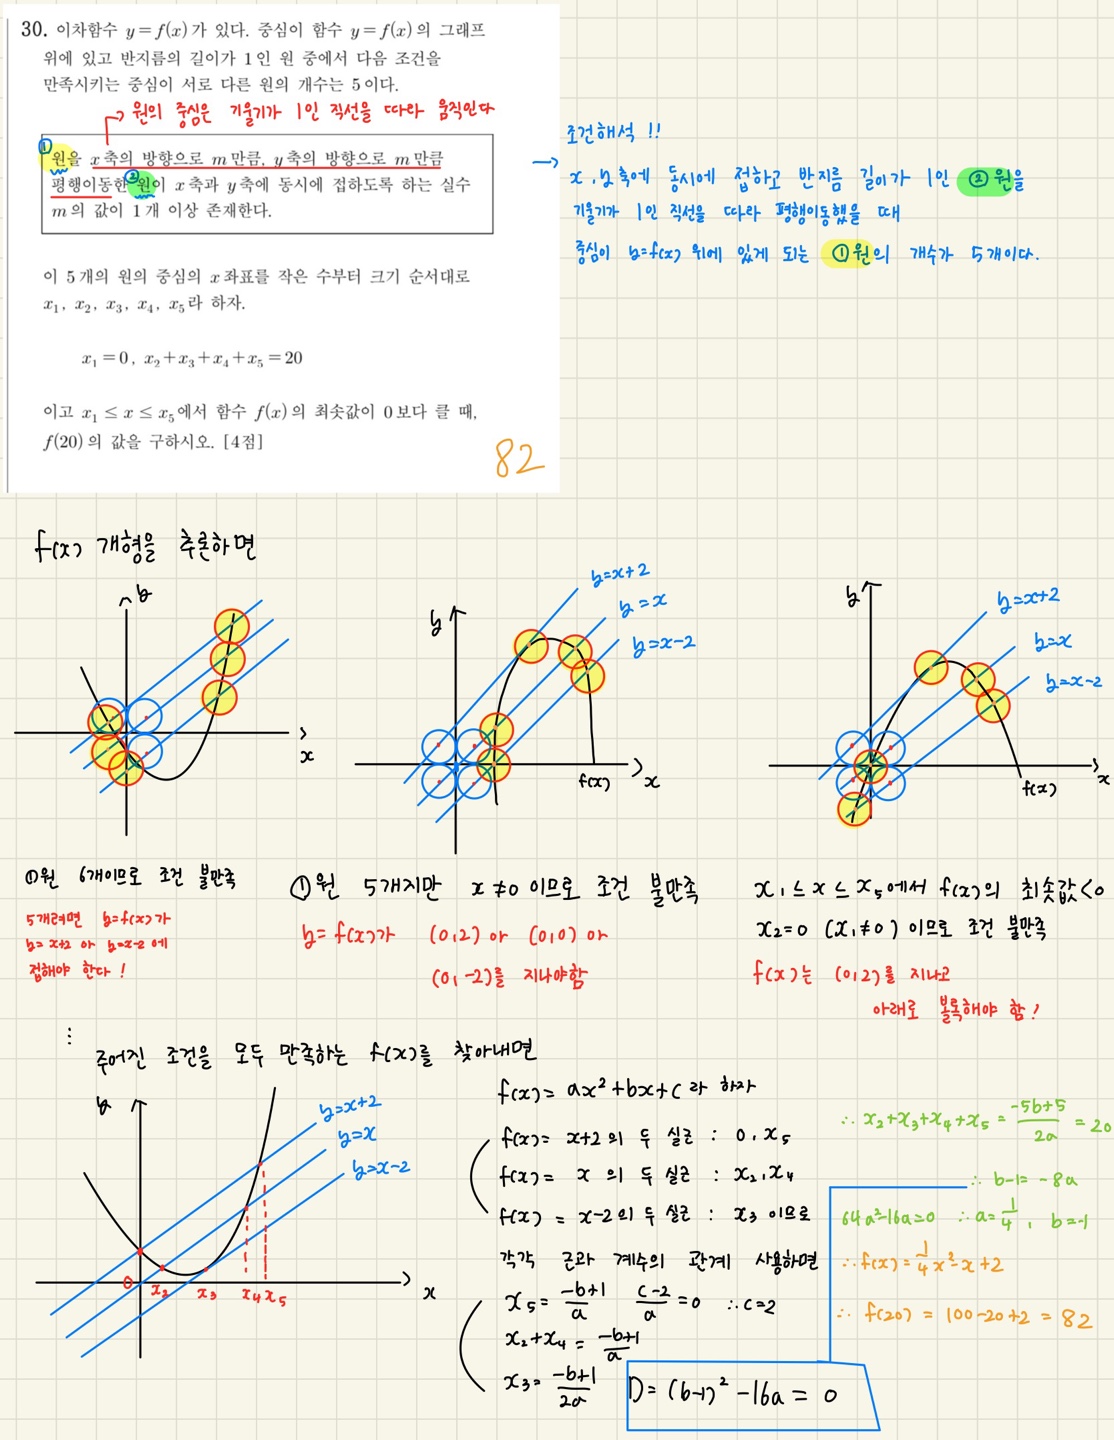 30. 이차함수 y=f(x)가 있다. 중심이 함수 y=f(x)의 그래프
위에 있고 반지름의 길이가 1인 원 중에서 다음 조건을
만족시키는 중심이 서로 다른 원의 개수는 5이다.
→ 원의 중심은 기울기가 1인 직선을 따라 움직인다
① 원을 x축의 방향으로 m만큼, y축의 방향으로 m만큼
평행이동한 ② 원이 x축과 y축에 동시에 접하도록 하는 실수
m의 값이 1개 이상 존재한다.
이 5개의 원의 중심의 x좌표를 작은 수부터 크기 순서대로
x₁, x₂, x₃, x₄, x₅라 하자.
x₁=0, x₂+x₃+x₄+x₅=20
이고 x₁≤x≤x₅에서 함수 f(x)의 최솟값이 0보다 클 때,
f(20)의 값을 구하시오. [4점]
82
조건해석 !!
→ x, y축에 동시에 접하고 반지름 길이가 1인 ②원을
기울기가 1인 직선을 따라 평행이동했을 때
중심이 y=f(x) 위에 있게 되는 ①원의 개수가 5개이다.
f(x) 개형을 추론하면
y
x
y=x+2
y=x
y=x-2
y
f(x)
x
y=x+2
y=x
y=x-2
y
f(x)
x
①원 6개이므로 조건 불만족
5개려면 y=f(x)가
y=x+2 or y=x-2에
접해야 한다!
①원 5개지만 x≠0이므로 조건 불만족
y=f(x)가 (0,2) or (0,0) or
(0,-2)를 지나야함
x₁≤x≤x₅에서 f(x)의 최솟값<0
x₂=0 (x₁≠0)이므로 조건 불만족
f(x)는 (0,2)를 지나고
아래로 볼록해야 함!
⋮
주어진 조건을 모두 만족하는 f(x)를 찾아내면
y
y=x+2
y=x
y=x-2
0 x₂ x₃ x₄ x₅ x
f(x)=ax²+bx+c라 하자
f(x)=x+2의 두 실근 : 0, x₅
f(x)=x의 두 실근 : x₂, x₄
f(x)=x-2의 두 실근 : x₃ 이므로
각각 근과 계수의 관계 사용하면
x₅=(-b+1)/a (c-2)/a=0 ∴c=2
x₂+x₄=(-b+1)/a
x₃=(-b+1)/2a
D=(b-1)²-16a=0
∴ x₂+x₃+x₄+x₅=(-5b+5)/2a=20
∴ b-1=-8a
64a²-16a=0 ∴a=1/4, b=-1
∴f(x)=1/4x²-x+2
∴ f(20)=100-20+2=82